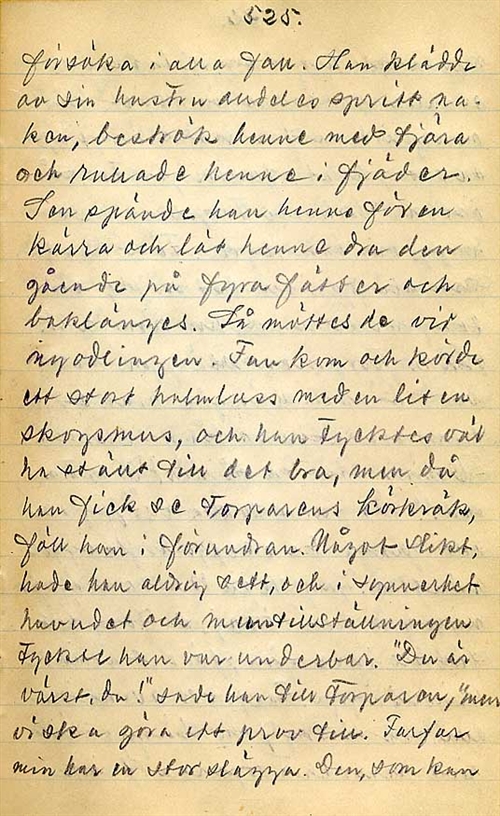 525.
försöka i alla fall. Han klädde
av sin hustru alldeles spritt na-
ken, beströk henne med tjära
och rullade henne i fjäder.
Sen spände han henne för en
kärra och lät henne dra den
gående på fyra fötter och
baklänges. Så möttes de vid
nyodlingen. Fan kom och körde
ett stort halmlass med en liten
skogsmus, och han tycktes väl
ha ställt till det bra, men då
han fick se torparens körkräk,
föll han i förundran. Något slikt,
hade han aldrig sett, och i synnerhet
huvudet och muntillställningen
tyckte han var underbar. "Du är
värst, du!" sade han till torparen, "men
vi ska göra ett prov till. Farfar
min har en stor slägga. Den, som kan